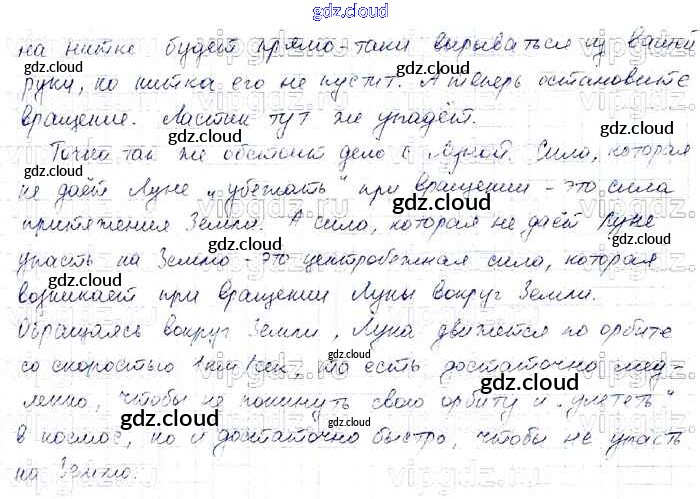 gdz.cloud
на нитке будет прямо-таки вырываться из вашей
руки, но нитка его не пустит. А теперь остановите
вращение. Ластик тут же упадёт.
Точно так же обстоит дело с Луной. Сила, которая
не даёт Луне „убежать“ при вращении - это сила
притяжения Земли. А сила, которая не даёт Луне
упасть на Землю - это центробежная сила, которая
возникает при вращении Луны вокруг Земли.
Обращаясь вокруг Земли, Луна движется по орбите
со скоростью 1 км/сек, то есть достаточно мед-
ленно, чтобы не покинуть свою орбиту и „улететь“
в космос, но и достаточно быстро, чтобы не упасть
на Землю.